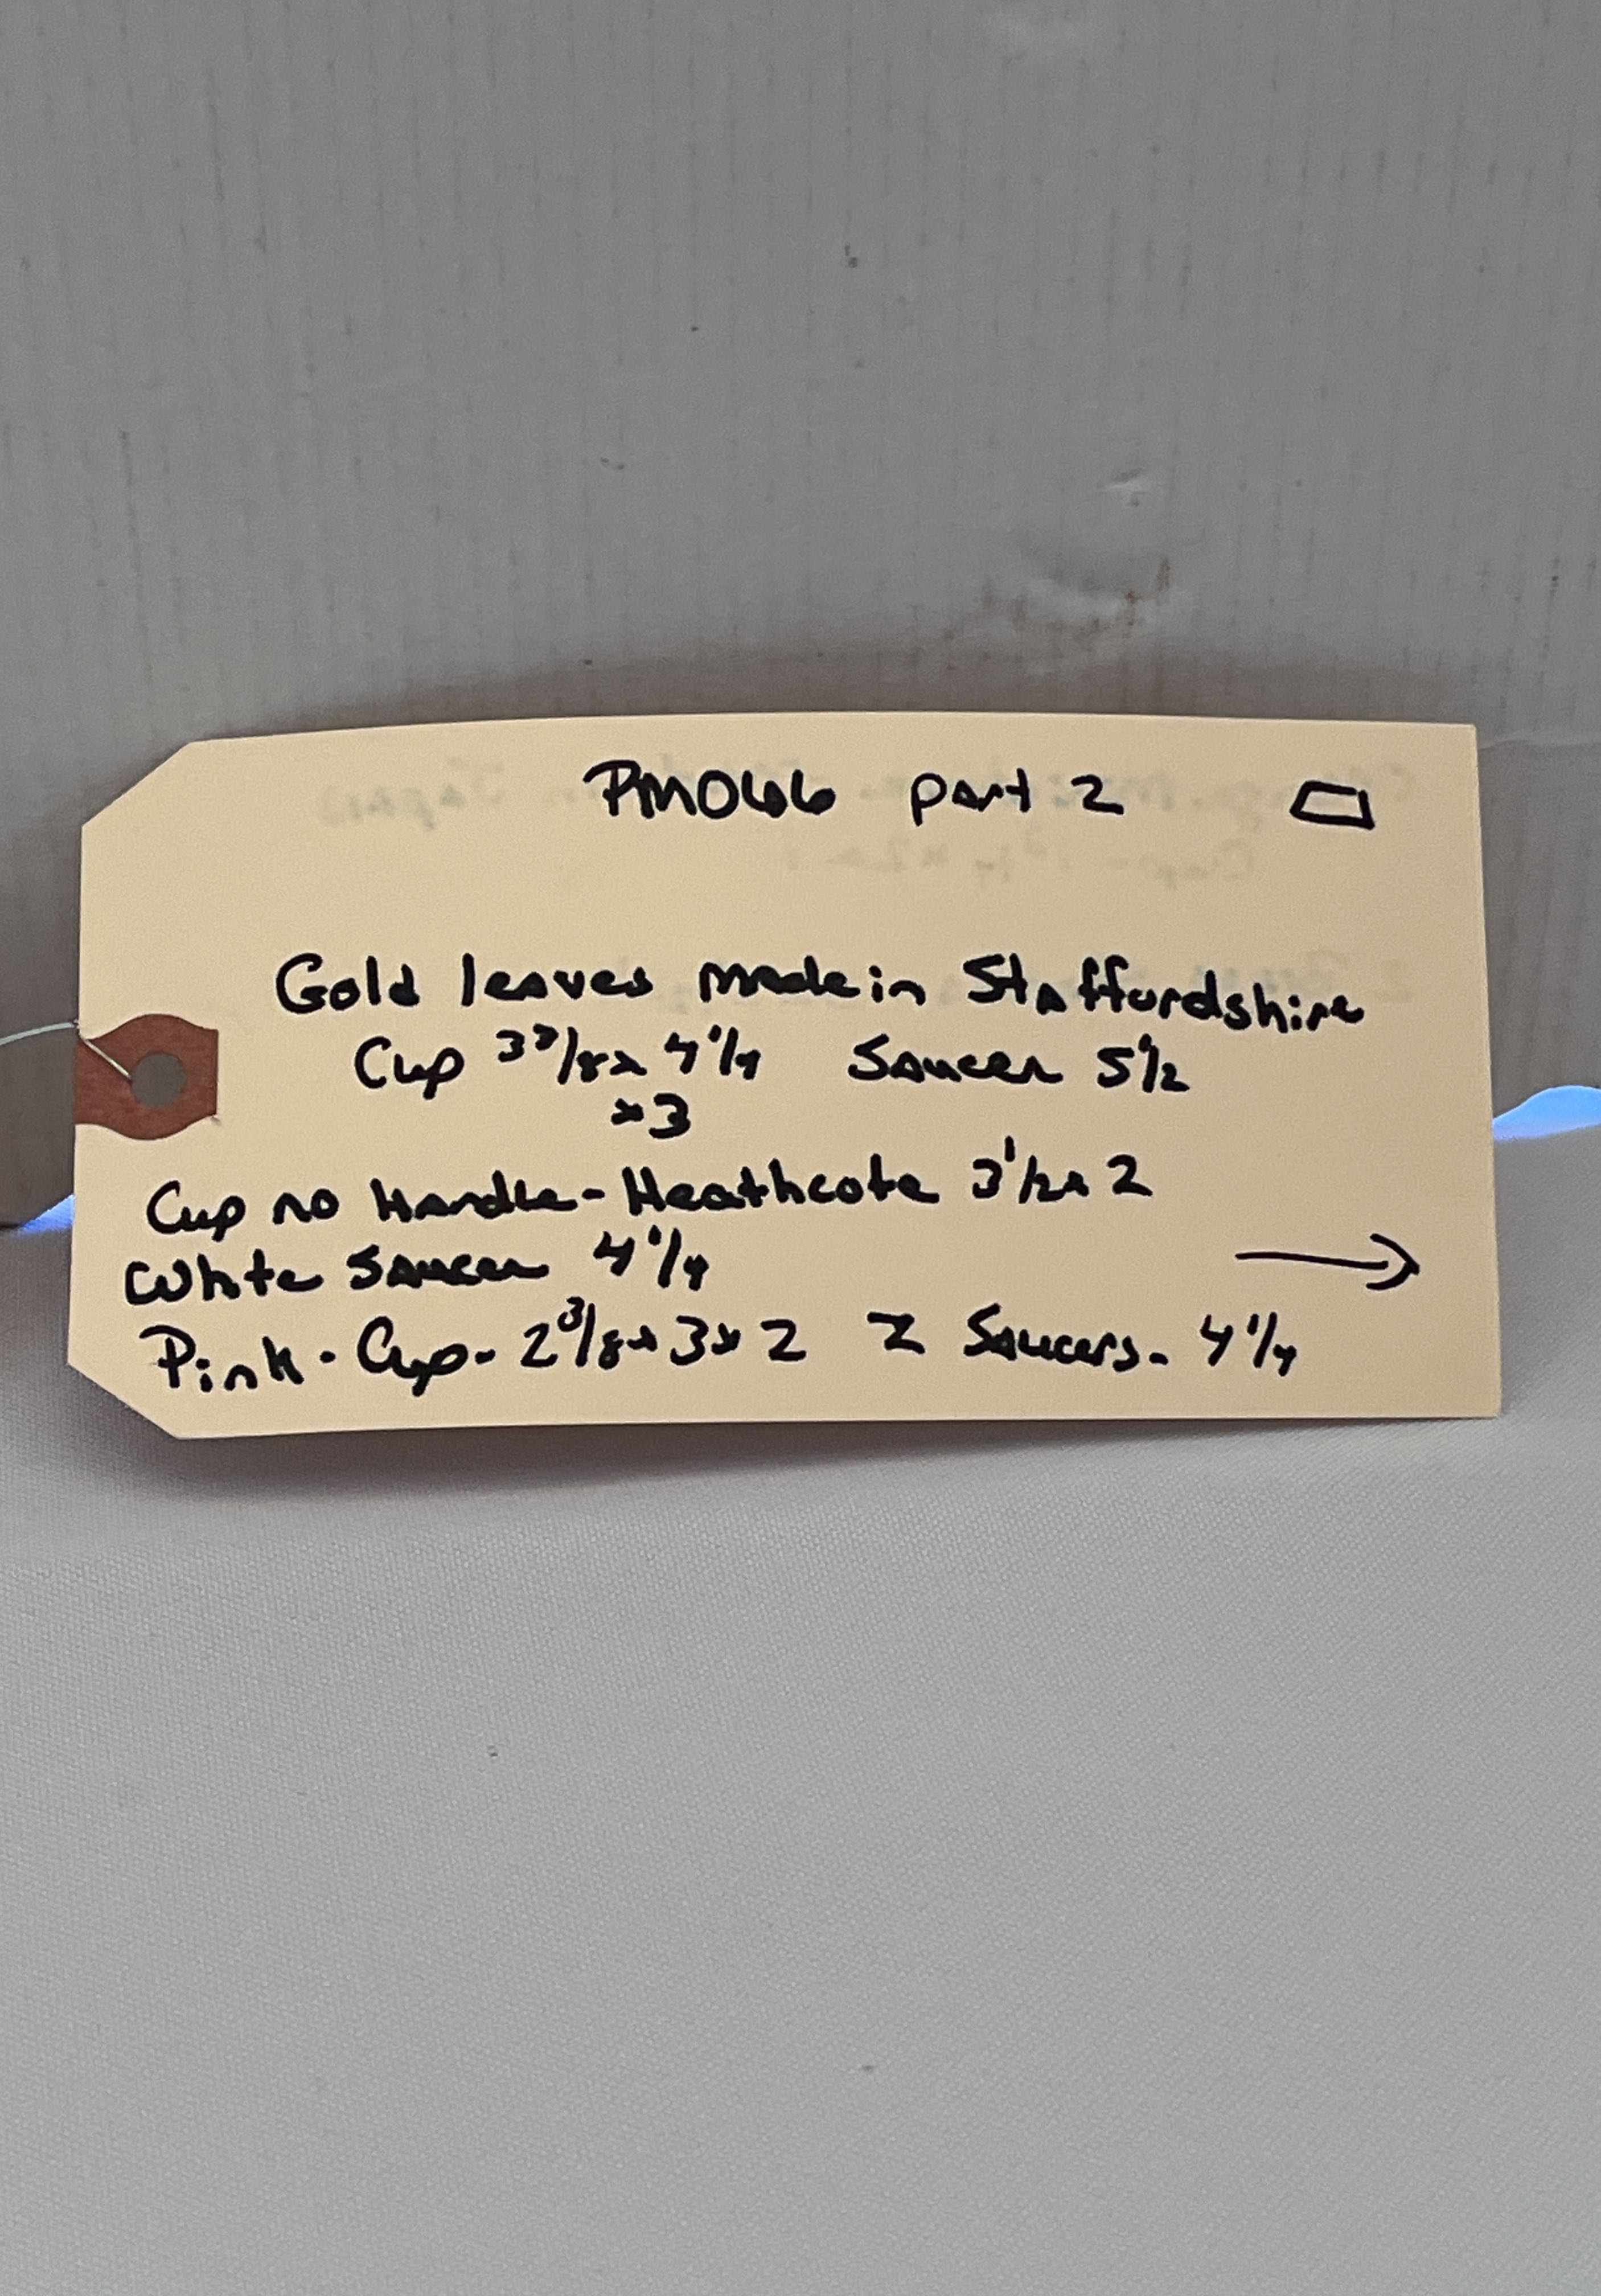 PM066 part 2
Gold leaves made in Staffordshire
Cup 3 3/8 x 4 1/4 Saucer 5 1/2
x 3
Cup no Handle - Heathcote 3 1/2 x 2
White Saucer 4 1/4
Pink - Cup - 2 3/8 x 3 x 2 2 Saucers - 4 1/4